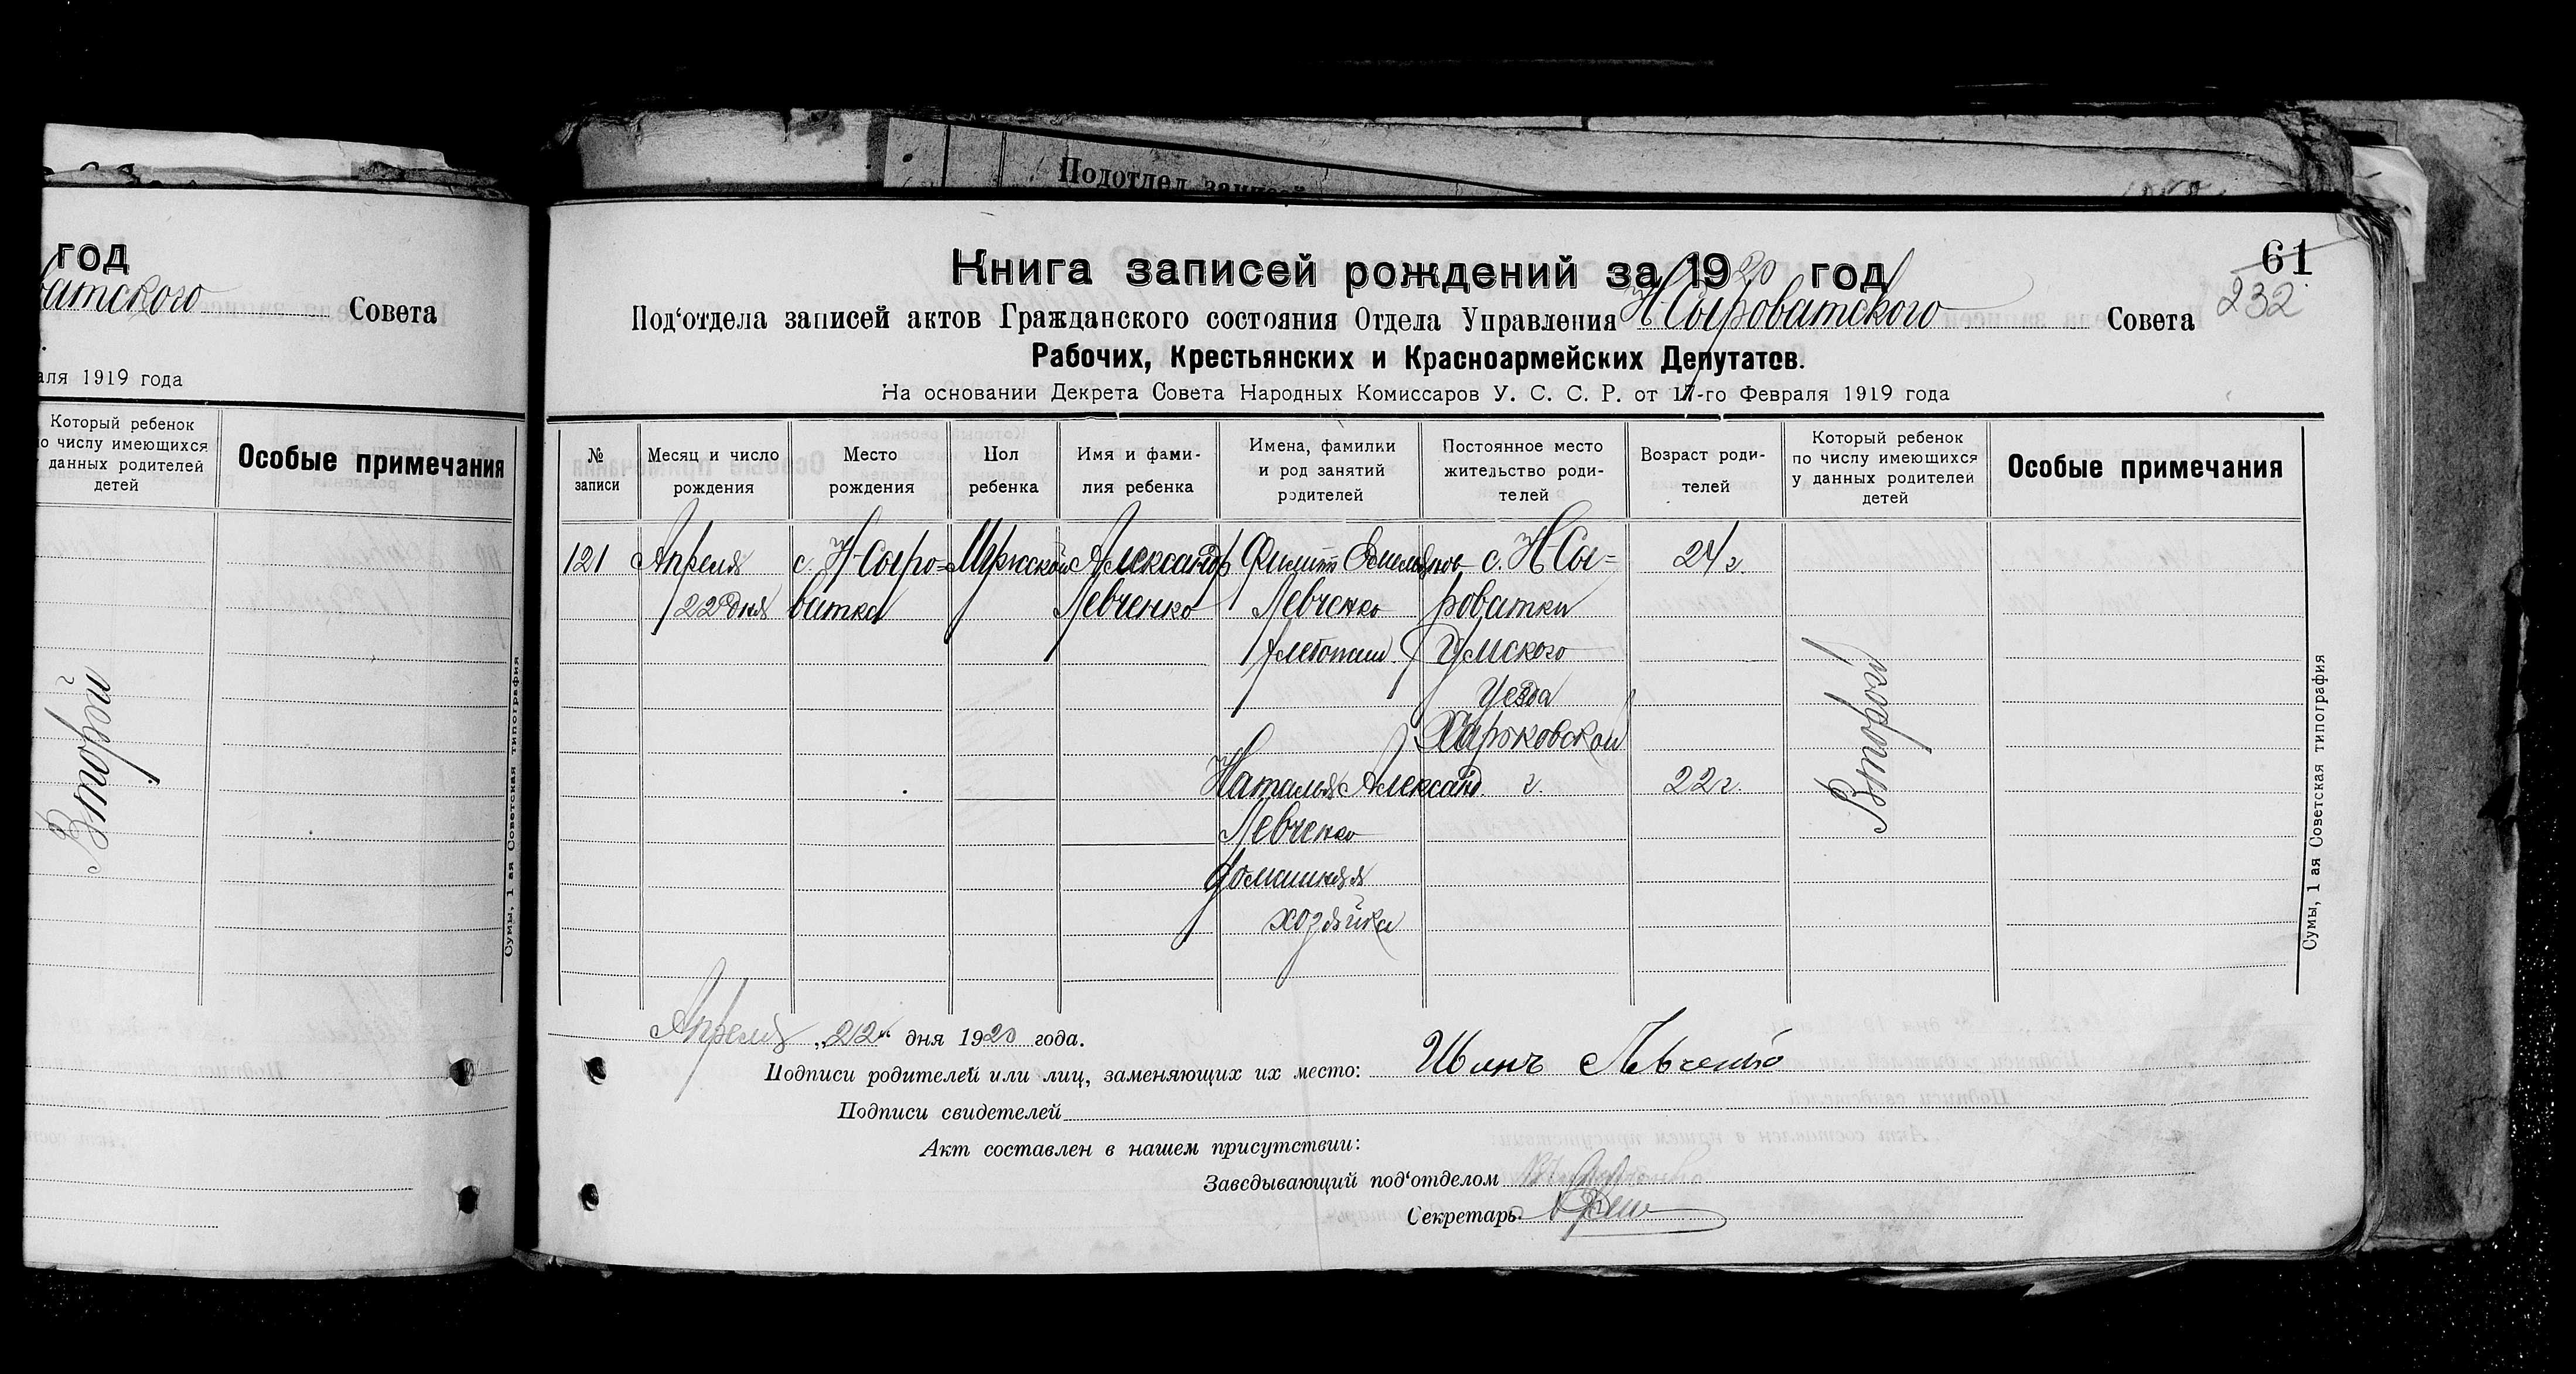 год
ватского Совета
аля 1919 года
Который ребенок
по числу имеющихся
у данных родителей
детей
Особые примечания
Второй
Сумы, 1 ая Советская типография
Подотдел записей
Книга записей рождений за 1920 год
61
232
Под'отдела записей актов Гражданского состояния Отдела Управления Н Сыроватского Совета
Рабочих, Крестьянских и Красноармейских Депутатов.
На основании Декрета Совета Народных Комиссаров У. С. С. Р. от 17-го Февраля 1919 года
№
записи
Месяц и число
рождения
Место
рождения
Пол
ребенка
Имя и фами-
лия ребенка
Имена, фамилии
и род занятий
родителей
Постоянное место
жительство роди-
телей
Возраст роди-
телей
Который ребенок
по числу имеющихся
у данных родителей
детей
Особые примечания
121
Апреля
22 дня
с. Н-Сыро=
ватка
Мужской
Александр
Левченко
Филипп Емельянов
Левченко
хлебопаш.
Наталья Александ
Левченко
домашняя
хозяйка
с. Н Сы=
роватки
Сумского
уезда
Харьковской
г.
24 г.
22 г.
Второй
Сумы, 1 ая Советская типография
Апреля „22" дня 1920 года.
Подписи родителей или лиц, заменяющих их место: Иван Левченко
Подписи свидетелей
Акт составлен в нашем присутствии:
Заведывающий под'отделом
Секретарь